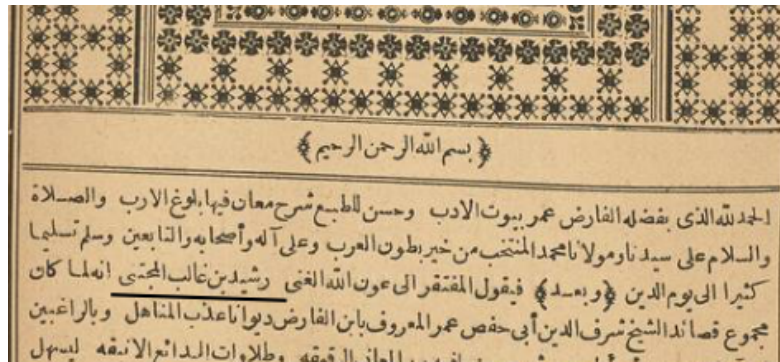 ﴿ بسم الله الرحمن الرحيم ﴾
الحمد لله الذى بفضله الفارض عمر بيوت الادب وحسن للطبع شرح معان فيها بلوغ الارب والصلاة
والسلام على سيدنا ومولانا محمد المنتخب من خير بطون العرب وعلى آله وأصحابه والتابعين وسلم تسليما
كثيرا الى يوم الدين ﴿وبعد﴾ فيقول المفتقر الى عون الله الغنى رشيد بن غالب المجتبى انه لما كان
مجموع قصائد الشيخ شرف الدين أبى حفص عمر المعروف بابن الفارض ديوانا عذب المناهل وبالراغبين
المعانى الرقيقه وطلاوات البدائع الانيقه ليسهل